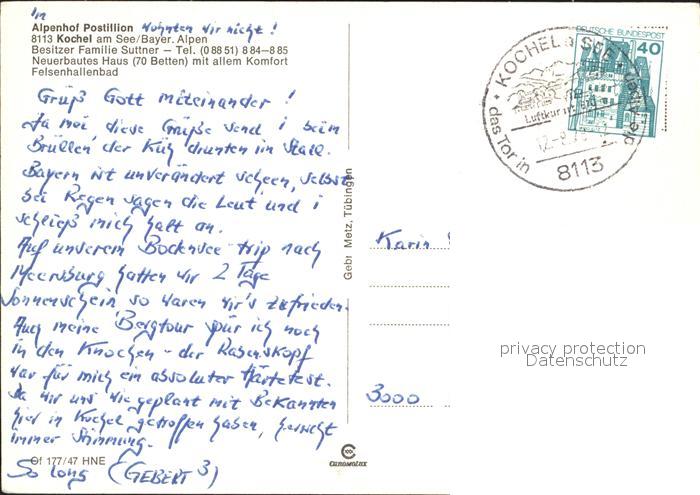 im
Alpenhof Postillion wohnten wir nicht!
8113 Kochel am See/Bayer. Alpen
Besitzer Familie Suttner – Tel. (0 88 51) 8 84–8 85
Neuerbautes Haus (70 Betten) mit allem Komfort
Felsenhallenbad
Grüß Gott miteinander!
Ja mei, diese Grüße send i beim
Brüllen der Küh drunten im Stall.
Bayern ist unverändert scheen, selbst
bei Regen sagen die Leut und i
schließ mich halt an.
Auf unserem Bodensee-trip nach
Meersburg hatten wir 2 Tage
Sonnenschein so waren wir's zufrieden.
Auch meine Bergtour spür ich noch
in den Knochen - der Rabenskopf
war für mich ein absoluter Härtetest.
Da wir uns wie geplant mit Bekannten
hier in Kochel getroffen haben, herrscht
immer Stimmung.
Of 177/47 HNE
So long (GEBERT 3)
Gebr Metz, Tübingen
Euromolux
KOCHEL a SEE
Luftkurort
das Tor in die Alpen
12.-8.
8113
DEUTSCHE BUNDESPOST
40
Karin
3000
privacy protection
Datenschutz